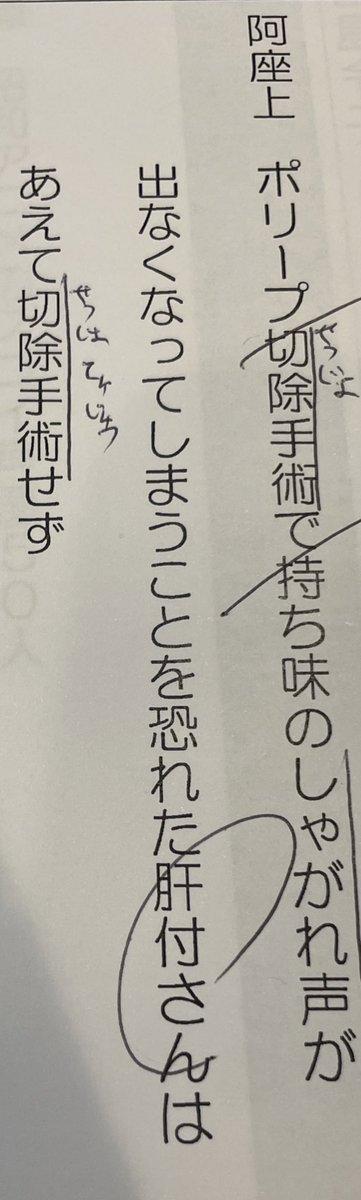 阿座上　ポリープ切除手術で持ち味のしゃがれ声が
せつじょ
出なくなってしまうことを恐れた肝付さんは
あえて切除手術せず